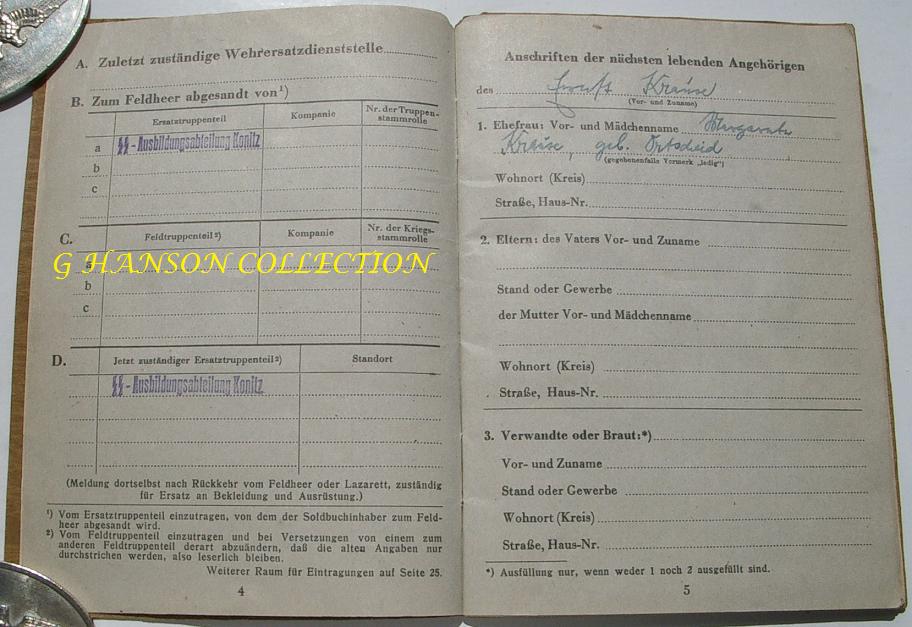 A. Zuletzt zuständige Wehrersatzdienststelle
B. Zum Feldheer abgesandt von¹)
Ersatztruppenteil Kompanie Nr. der Truppen-
stammrolle
a ϟϟ-Ausbildungsabteilung Konitz
b
c
C. Feldtruppenteil²) Kompanie Nr. der Kriegs-
stammrolle
a
G HANSON COLLECTION
b
c
D. Jetzt zuständiger Ersatztruppenteil²) Standort
ϟϟ-Ausbildungsabteilung Konitz
(Meldung dortselbst nach Rückkehr vom Feldheer oder Lazarett, zuständig
für Ersatz an Bekleidung und Ausrüstung.)
¹) Vom Ersatztruppenteil einzutragen, von dem der Soldbuchinhaber zum Feld-
heer abgesandt wird.
²) Vom Feldtruppenteil einzutragen und bei Versetzungen von einem zum
anderen Feldtruppenteil derart abzuändern, daß die alten Angaben nur
durchstrichen werden, also leserlich bleiben.
Weiterer Raum für Eintragungen auf Seite 25.
4
Anschriften der nächsten lebenden Angehörigen
des Ernst Krause
(Vor- und Zuname)
1. Ehefrau: Vor- und Mädchenname
Krause, geb. Ortscheid
(gegebenenfalls Vermerk „ledig")
Wohnort (Kreis)
Straße, Haus-Nr.
2. Eltern: des Vaters Vor- und Zuname
Stand oder Gewerbe
der Mutter Vor- und Mädchenname
Wohnort (Kreis)
Straße, Haus-Nr.
3. Verwandte oder Braut:*)
Vor- und Zuname
Stand oder Gewerbe
Wohnort (Kreis)
Straße, Haus-Nr.
*) Ausfüllung nur, wenn weder 1 noch 2 ausgefüllt sind.
5